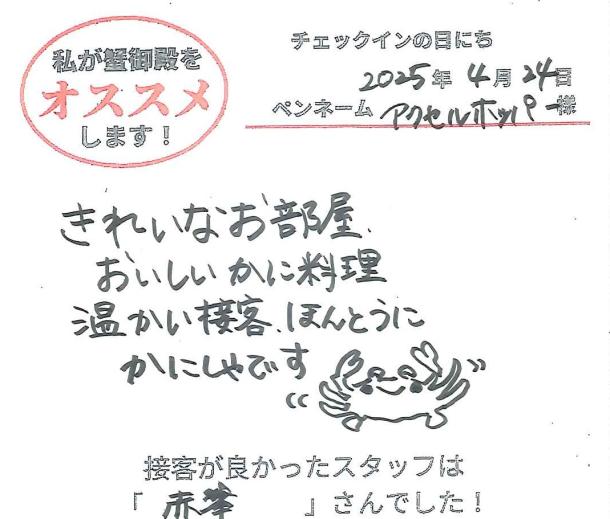 私が蟹御殿を
オススメ
します！
チェックインの日にち
2025年4月24日
ペンネーム アクセルホッパー様
きれいなお部屋、
おいしいかに料理
温かい接客、ほんとうに
かにしゃです
接客が良かったスタッフは
「赤峯」さんでした！